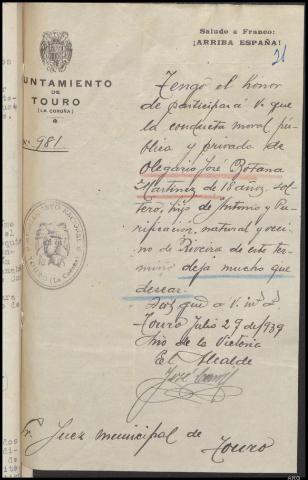 Saludo a Franco:
¡ARRIBA ESPAÑA!
21
UNTAMIENTO
DE
TOURO
(LA CORUÑA)
N.º 981
Tengo el honor
de participar á V. que
la conducta moral pú-
blica y privada de
Olegario José Botana
Martinez de 18 años, sol-
tero, hijo de Antonio y Pu-
rificación, natural y veci-
no de Riveira de este ter-
mino deja mucho que
desear.
Dios gue a V. m. a.
Touro Julio 29 de 1939
Año de la Victoria
El Alcalde
Sr. Juez municipal de
Touro
TOURO (La Coruña)